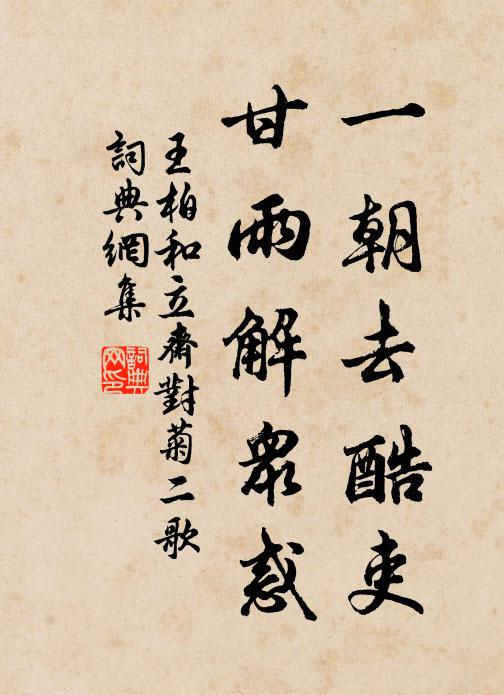 一朝去酷吏
甘雨解眾惑
王柏和立齋對菊二歌
詞典網集
詞典网印